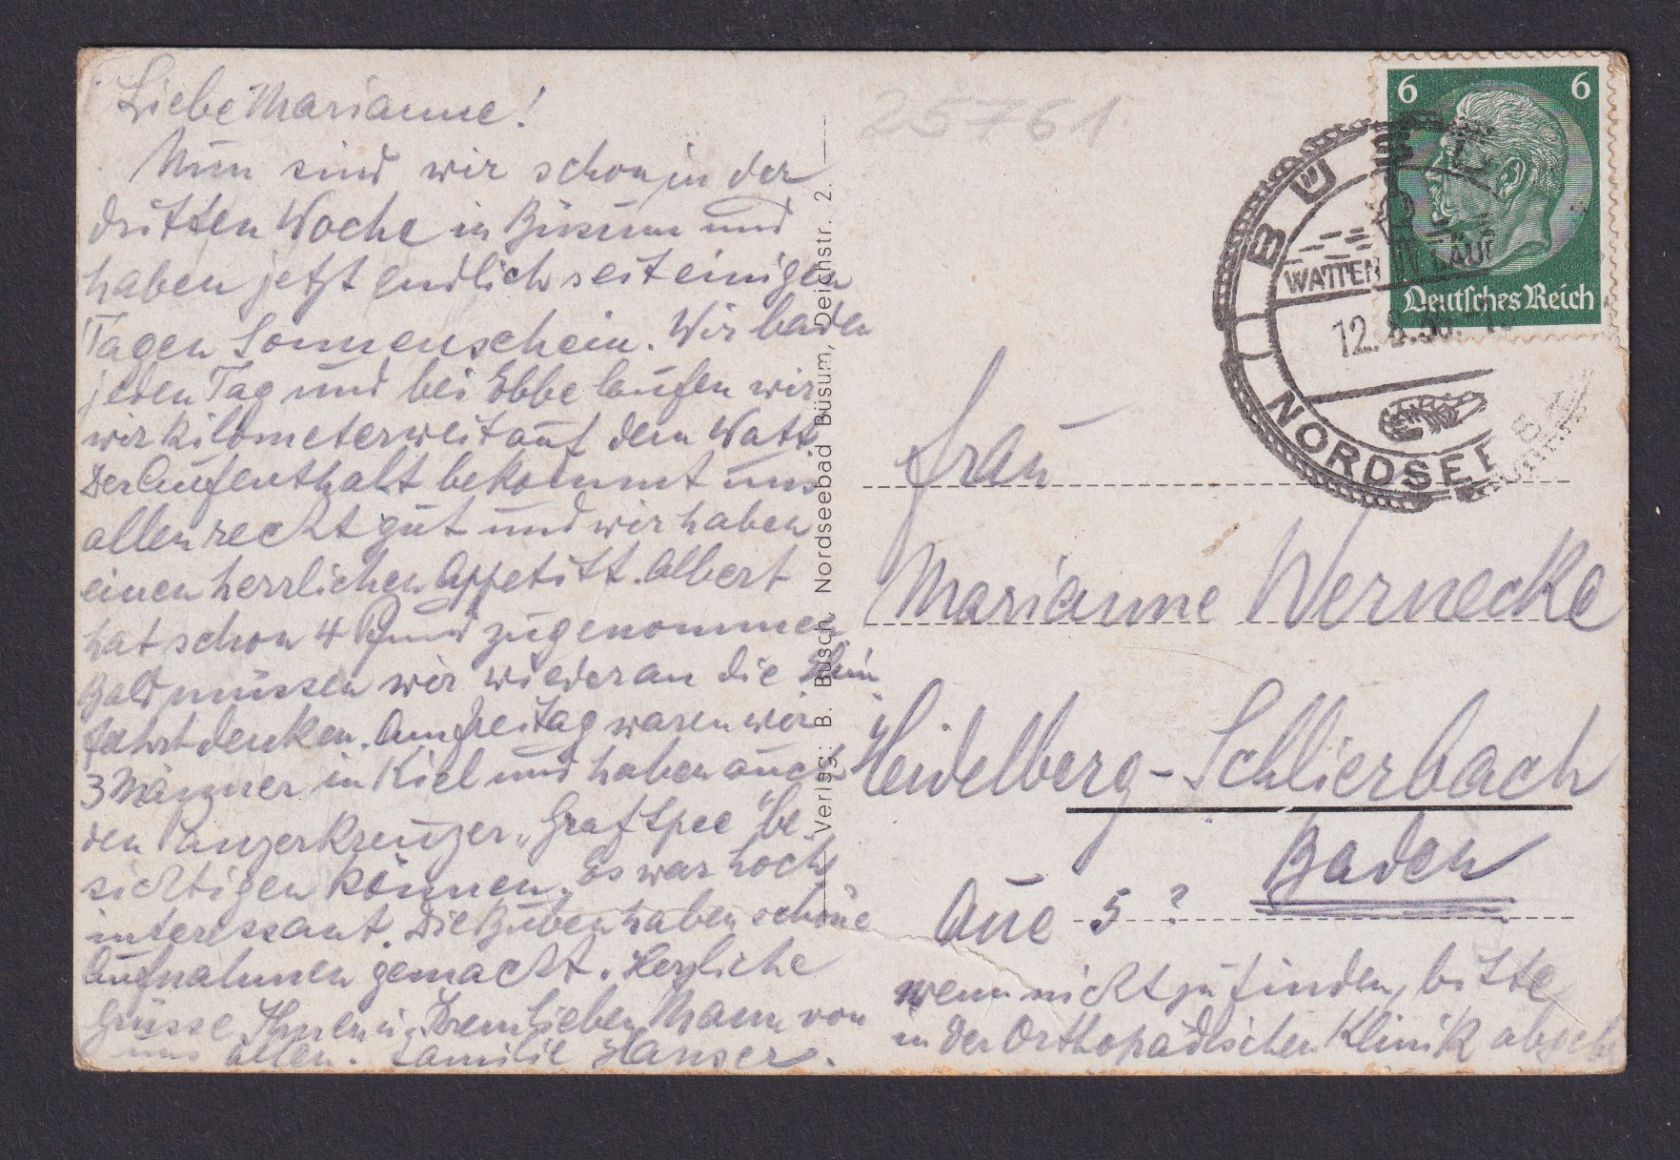 Liebe Marianne!
Nun sind wir schon in der
dritten Woche in Büsum und
haben jetzt endlich seit einigen
Tagen Sonnenschein. Wir baden
jeden Tag und bei Ebbe laufen wir
wir kilometerweit auf dem Watt
Der Aufenthalt bekommt uns
allen recht gut und wir haben
einen herrlichen Appetitt. Albert
hat schon 4 Pfund zugenommen
Bald müssen wir wieder an die Heim
fahrt denken. Am Freitag waren wir
3 Männer in Kiel und haben auch
den Panzerkreuzer "Graf Spee" be-
sichtigen können. Es war hoch
interessant. Die Buben haben schöne
Aufnahmen gemacht. Herzliche
Grüsse Ihnen u. Ihrem lieben Mann von
uns allen. Familie Hauser.
Verlag: B. Büsch, Nordseebad Büsum, Deichstr. 2.
25761
6 6
Deutsches Reich
BÜSU
WATTEN LAUF
12. 8.36.
NORDSEE
Frau
Marianne Wernecke
Heidelberg-Schlierbach
Baden
Aue 5 ?
wenn nicht zu finden, bitte
in der Orthopädischen Klinik abgeben